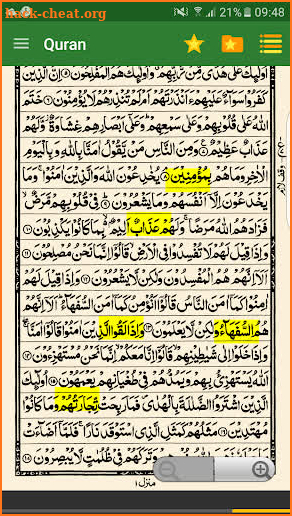 hack-cheat.org 21% 09:48
Quran
اُولٰٓئِكَ عَلٰى هُدًى مِّنْ رَّبِّهِمْ وَاُولٰٓئِكَ هُمُ الْمُفْلِحُوْنَ ۝ اِنَّ الَّذِيْنَ
كَفَرُوْا سَوَآءٌ عَلَيْهِمْ ءَاَنْذَرْتَهُمْ اَمْ لَمْ تُنْذِرْهُمْ لَا يُؤْمِنُوْنَ ۝ خَتَمَ
اللّٰهُ عَلٰى قُلُوْبِهِمْ وَعَلٰى سَمْعِهِمْ وَعَلٰٓى اَبْصَارِهِمْ غِشَاوَةٌ وَّلَهُمْ
عَذَابٌ عَظِيْمٌ ۝ وَمِنَ النَّاسِ مَنْ يَّقُوْلُ اٰمَنَّا بِاللّٰهِ وَبِالْيَوْمِ
الْاٰخِرِ وَمَا هُمْ بِمُؤْمِنِيْنَ ۝ يُخٰدِعُوْنَ اللّٰهَ وَالَّذِيْنَ اٰمَنُوْا وَمَا
يَخْدَعُوْنَ اِلَّآ اَنْفُسَهُمْ وَمَا يَشْعُرُوْنَ ۝ فِيْ قُلُوْبِهِمْ مَّرَضٌ
فَزَادَهُمُ اللّٰهُ مَرَضًا وَلَهُمْ عَذَابٌ اَلِيْمٌۢ بِمَا كَانُوْا يَكْذِبُوْنَ ۝
وَاِذَا قِيْلَ لَهُمْ لَا تُفْسِدُوْا فِى الْاَرْضِ قَالُوْٓا اِنَّمَا نَحْنُ مُصْلِحُوْنَ ۝
اَلَآ اِنَّهُمْ هُمُ الْمُفْسِدُوْنَ وَلٰكِنْ لَّا يَشْعُرُوْنَ ۝ وَاِذَا قِيْلَ لَهُمْ
اٰمِنُوْا كَمَآ اٰمَنَ النَّاسُ قَالُوْٓا اَنُؤْمِنُ كَمَآ اٰمَنَ السُّفَهَآءُ اَلَآ اِنَّهُمْ
هُمُ السُّفَهَآءُ وَلٰكِنْ لَّا يَعْلَمُوْنَ ۝ وَاِذَا لَقُوا الَّذِيْنَ اٰمَنُوْا قَالُوْٓا اٰمَنَّا
وَاِذَا خَلَوْا اِلٰى شَيٰطِيْنِهِمْ قَالُوْٓا اِنَّا مَعَكُمْ اِنَّمَا نَحْنُ مُسْتَهْزِءُوْنَ ۝
اَللّٰهُ يَسْتَهْزِئُ بِهِمْ وَيَمُدُّهُمْ فِيْ طُغْيَانِهِمْ يَعْمَهُوْنَ ۝ اُولٰٓئِكَ
الَّذِيْنَ اشْتَرَوُا الضَّلٰلَةَ بِالْهُدٰى فَمَا رَبِحَتْ تِّجَارَتُهُمْ وَمَا كَانُوْا
مُهْتَدِيْنَ ۝ مَثَلُهُمْ كَمَثَلِ الَّذِى اسْتَوْقَدَ نَارًا فَلَمَّآ اَضَآءَتْ
وَتَرَكَهُمْ فِيْ ظُلُمٰتٍ لَّا يُبْصِرُوْنَ ۝
منزل ١